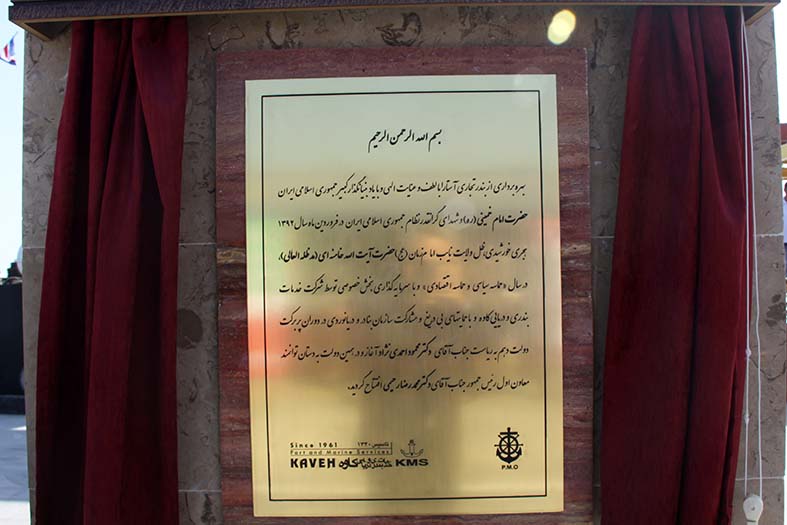 بسم الله الرحمن الرحیم
بهره برداری از بندر تجاری آستارا با لطف و عنایت الهی و با یاد بنیانگذار کبیر جمهوری اسلامی ایران
حضرت امام خمینی (ره) و شهدای گرانقدر نظام جمهوری اسلامی ایران در فروردین ماه سال ۱۳۹۲
هجری خورشیدی، ظل ولایت نایب امام زمان (عج) حضرت آیت الله خامنه ای (مد ظله العالی)،
در سال «حماسه سیاسی و حماسه اقتصادی» و با سرمایه گذاری بخش خصوصی توسط شرکت خدمات
بندری و دریایی کاوه و با حمایتهای بی دریغ و مشارکت سازمان بنادر و دریانوردی در دوران پر برکت
دولت دهم به ریاست جناب آقای دکتر محمود احمدی نژاد آغاز و در همین دولت به دستان توانمند
معاون اول رئیس جمهور جناب آقای دکتر محمدرضا رحیمی افتتاح گردید.
Since 1961 تاسیس ۱۳۴۰
Port and Marine Services
KAVEH کاوه KMS
P.M.O